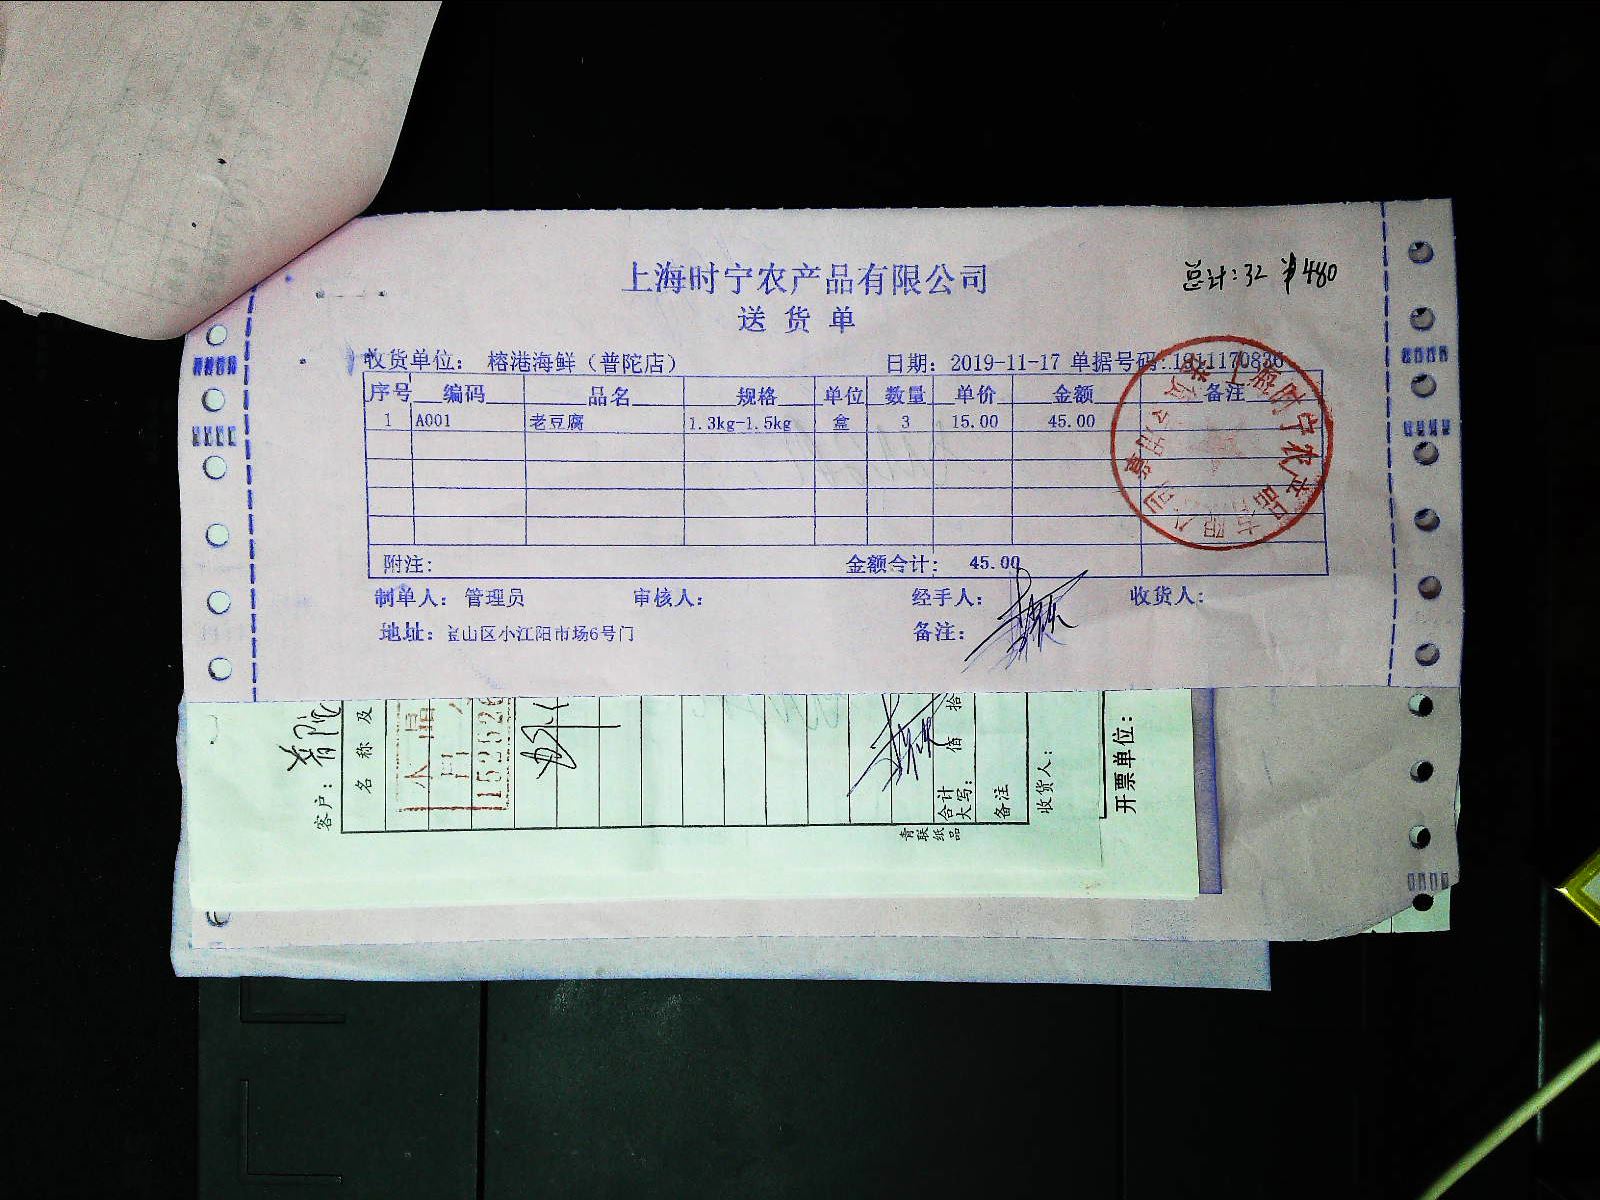 上海时宁农产品有限公司
总计:32 ¥480
送货单
收货单位: 榕港海鲜(普陀店) 日期: 2019-11-17 单据号码:1911170836
序号 编码 品名 规格 单位 数量 单价 金额 备注
1 A001 老豆腐 1.3kg-1.5kg 盒 3 15.00 45.00
附注: 金额合计: 45.00
制单人: 管理员 审核人: 经手人: 收货人:
地址: 宝山区小江阳市场6号门 备注:
上海时宁农产品有限公司
客户: 普陀
名称及
152526
拾
佰
合计
大写:
备注
收货人:
开票单位:
青联纸品